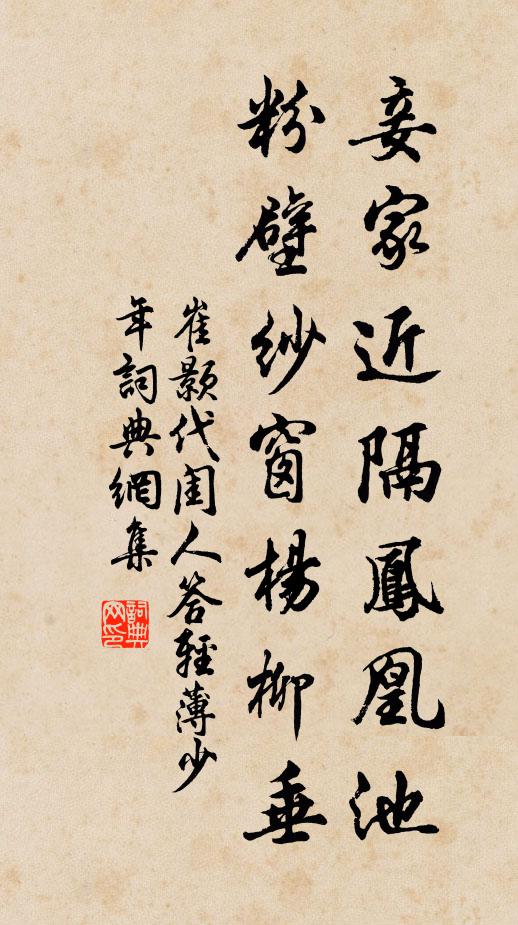 妾家近隔鳳凰池
粉壁紗窗楊柳垂
崔顥代閨人答輕薄少
年詞典網集
詞典网印